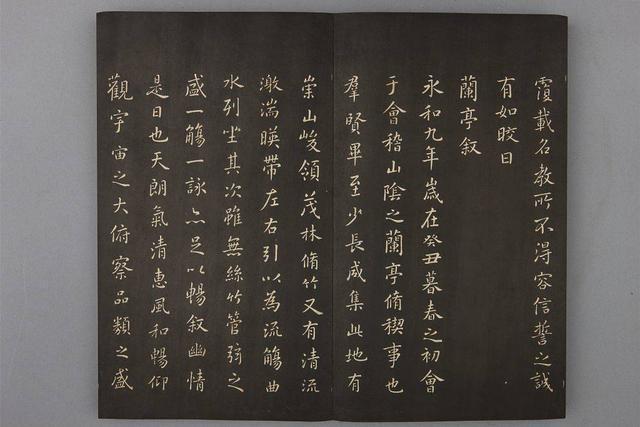 覆載名教所不得容信誓之誠
有如皎日
蘭亭叙
永和九年歲在癸丑暮春之初會
于會稽山陰之蘭亭脩禊事也
羣賢畢至少長咸集此地有
崇山峻領茂林脩竹又有清流
激湍暎帶左右引以為流觴曲
水列坐其次雖無絲竹管弦之
盛一觴一詠亦足以暢叙幽情
是日也天朗氣清惠風和暢仰
觀宇宙之大俯察品類之盛